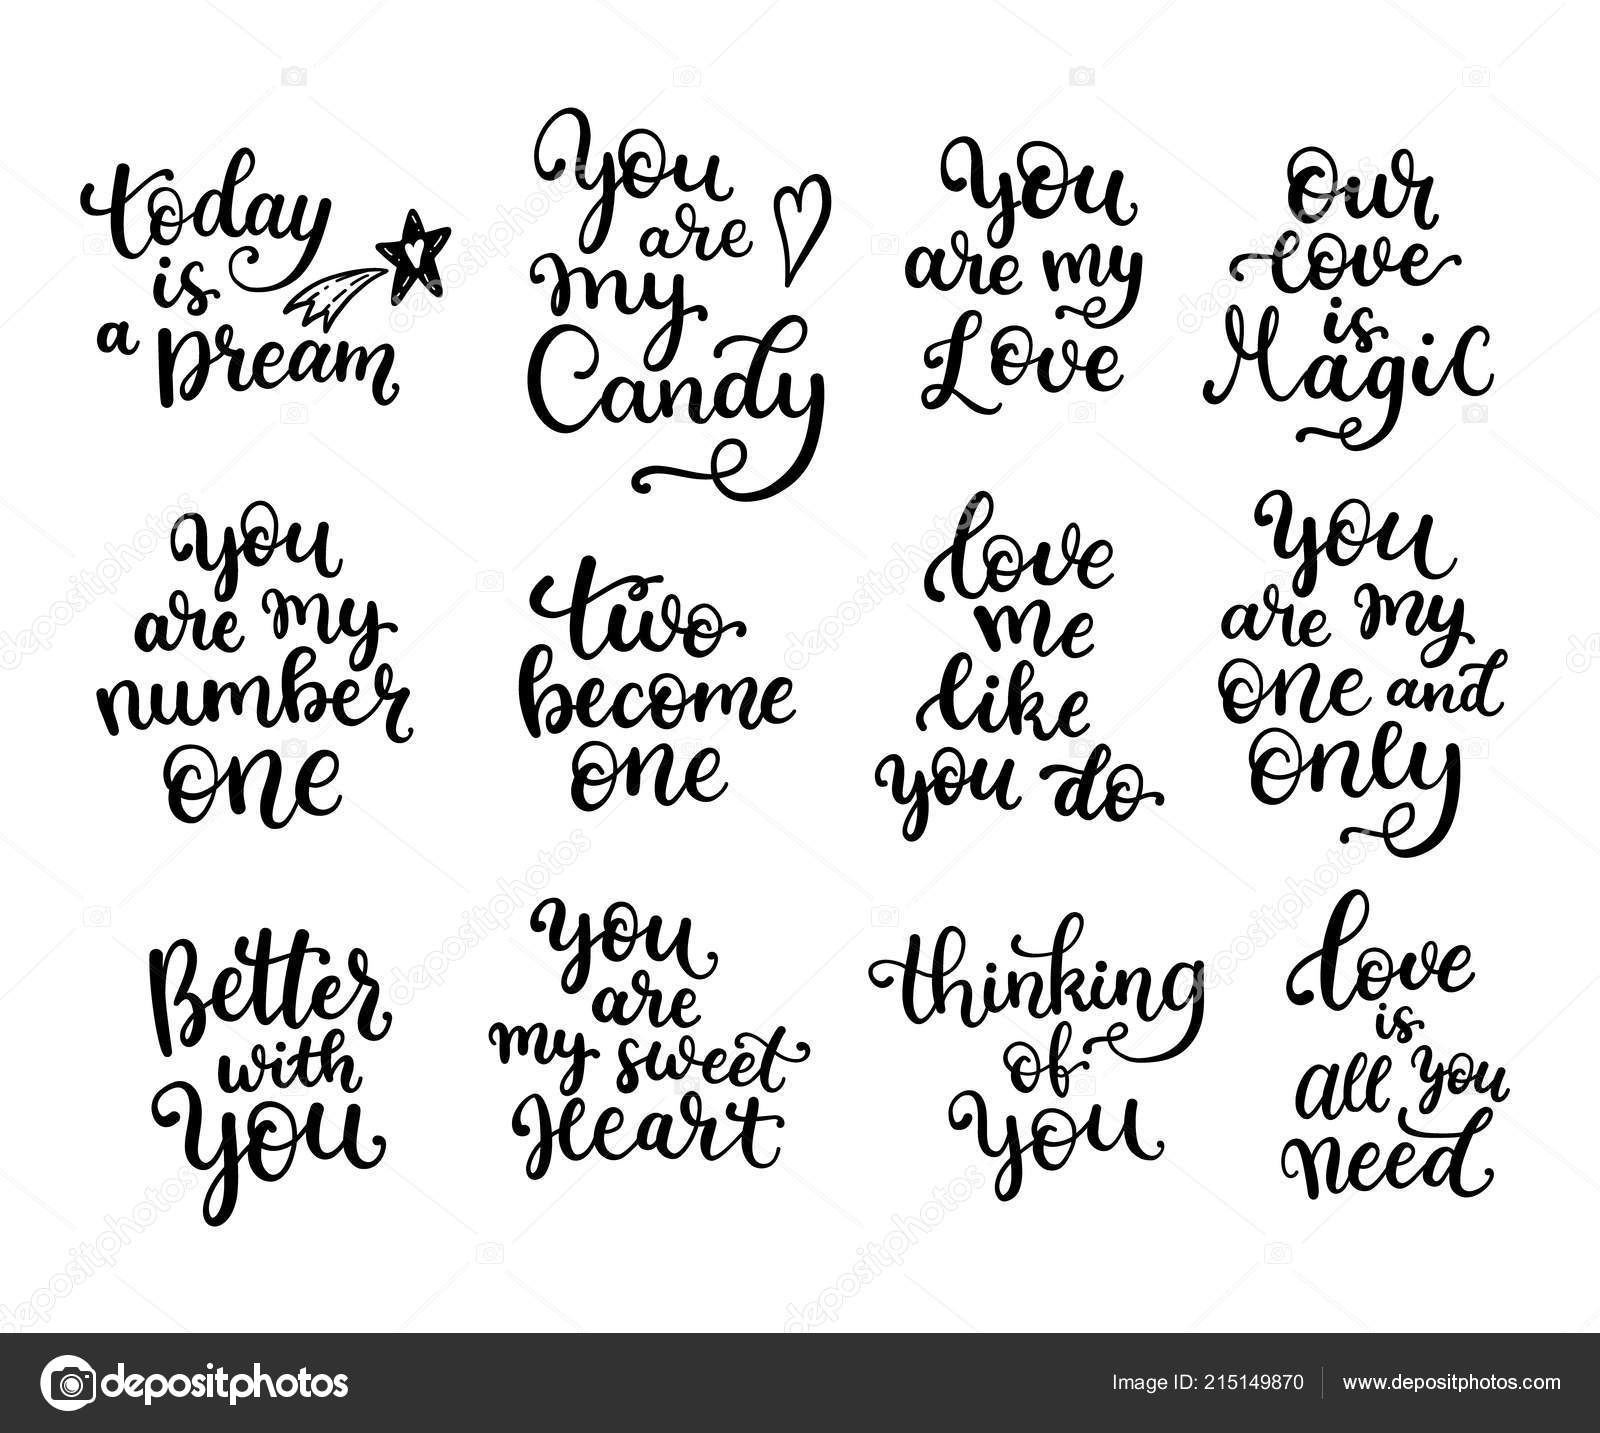 today
is
a Dream
You
are
my
Candy
You
are my
Love
Our
love
is
Magic
you
are my
number
one
two
become
one
love
me
like
you do
You
are my
one and
only
Better
with
You
you
are
my sweet
Heart
thinking
of
you
love
is
all you
need
depositphotos
Image ID: 215149870
www.depositphotos.com